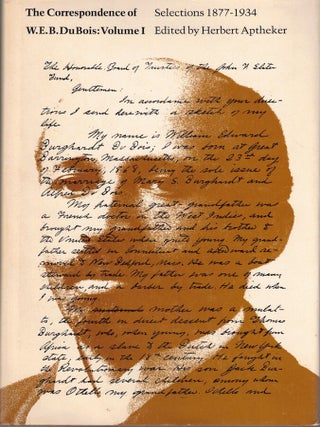 The Correspondence of
W.E.B. DuBois: Volume I
Selections 1877-1934
Edited by Herbert Aptheker
The Honorable Board of Trustees of the John F. Slater
Fund,
Gentlemen:
In accordance with your direc-
tions I send herewith a sketch of my
life.
My name is William Edward
Burghardt Du Bois; I was born at Great
Barrington, Massachusetts, on the 23rd day
of February, 1868, being the sole issue of
the marriage of Mary S. Burghardt and
Alfred Du Bois.
My paternal great-grandfather was
a French doctor in the West Indies, and
brought my grandfather and his brother to
the United States when quite young. My grand-
father settled in Connecticut and
to New Bedford, Mass. He was a boat
steward by trade. My father was one of many
children, and a barber by trade. He died when
I was young.
My mother was a mulat-
to, the fourth in direct descent from Thomas
Burghardt, who, when young, was brought from
Africa as a slave to the Dutch in New York
state, early in the 18th century. He fought in
the Revolutionary war. His son Jack Bur-
ghardt had several children, among whom
was Othello my grandfather. Othello and